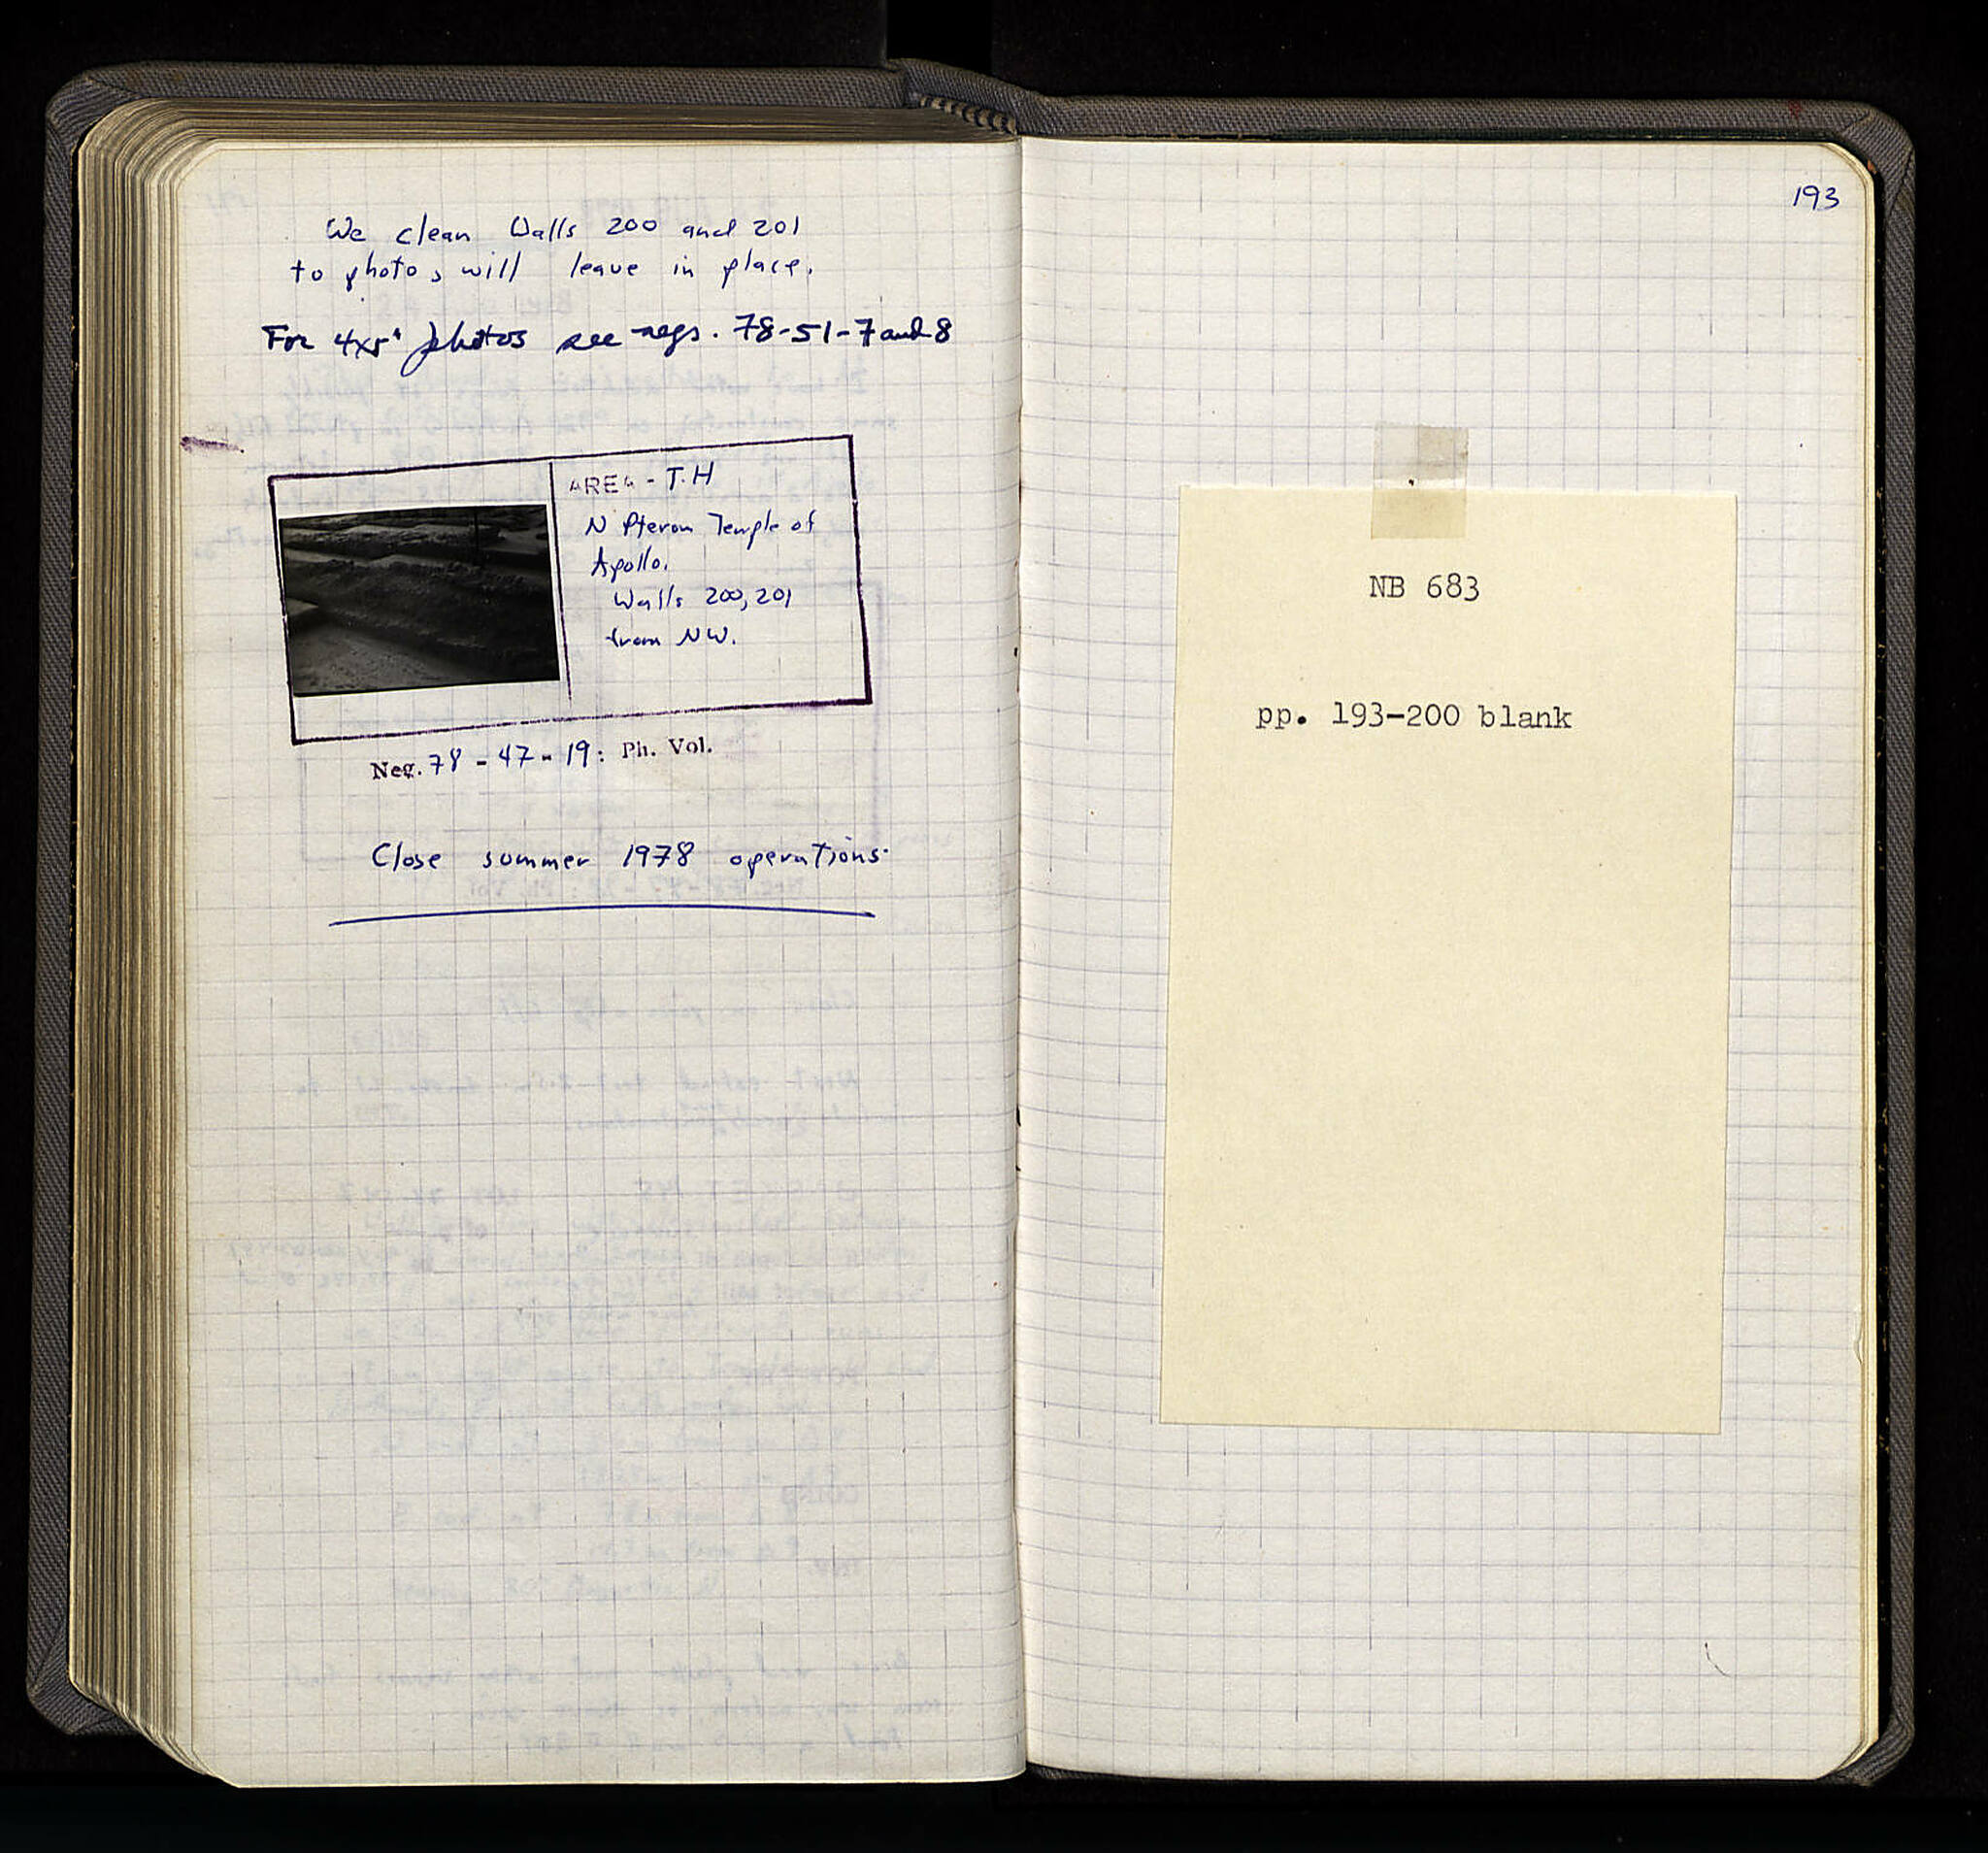 We clean Walls 200 and 201
to photo, will leave in place.
For 4x5" photos see negs. 78-51-7 and 8
AREA - T.H
N Pteron Temple of
Apollo.
Walls 200, 201
from NW.
Neg. 78 - 47 - 19 : Ph. Vol.
Close summer 1978 operations.
193
NB 683
pp. 193-200 blank